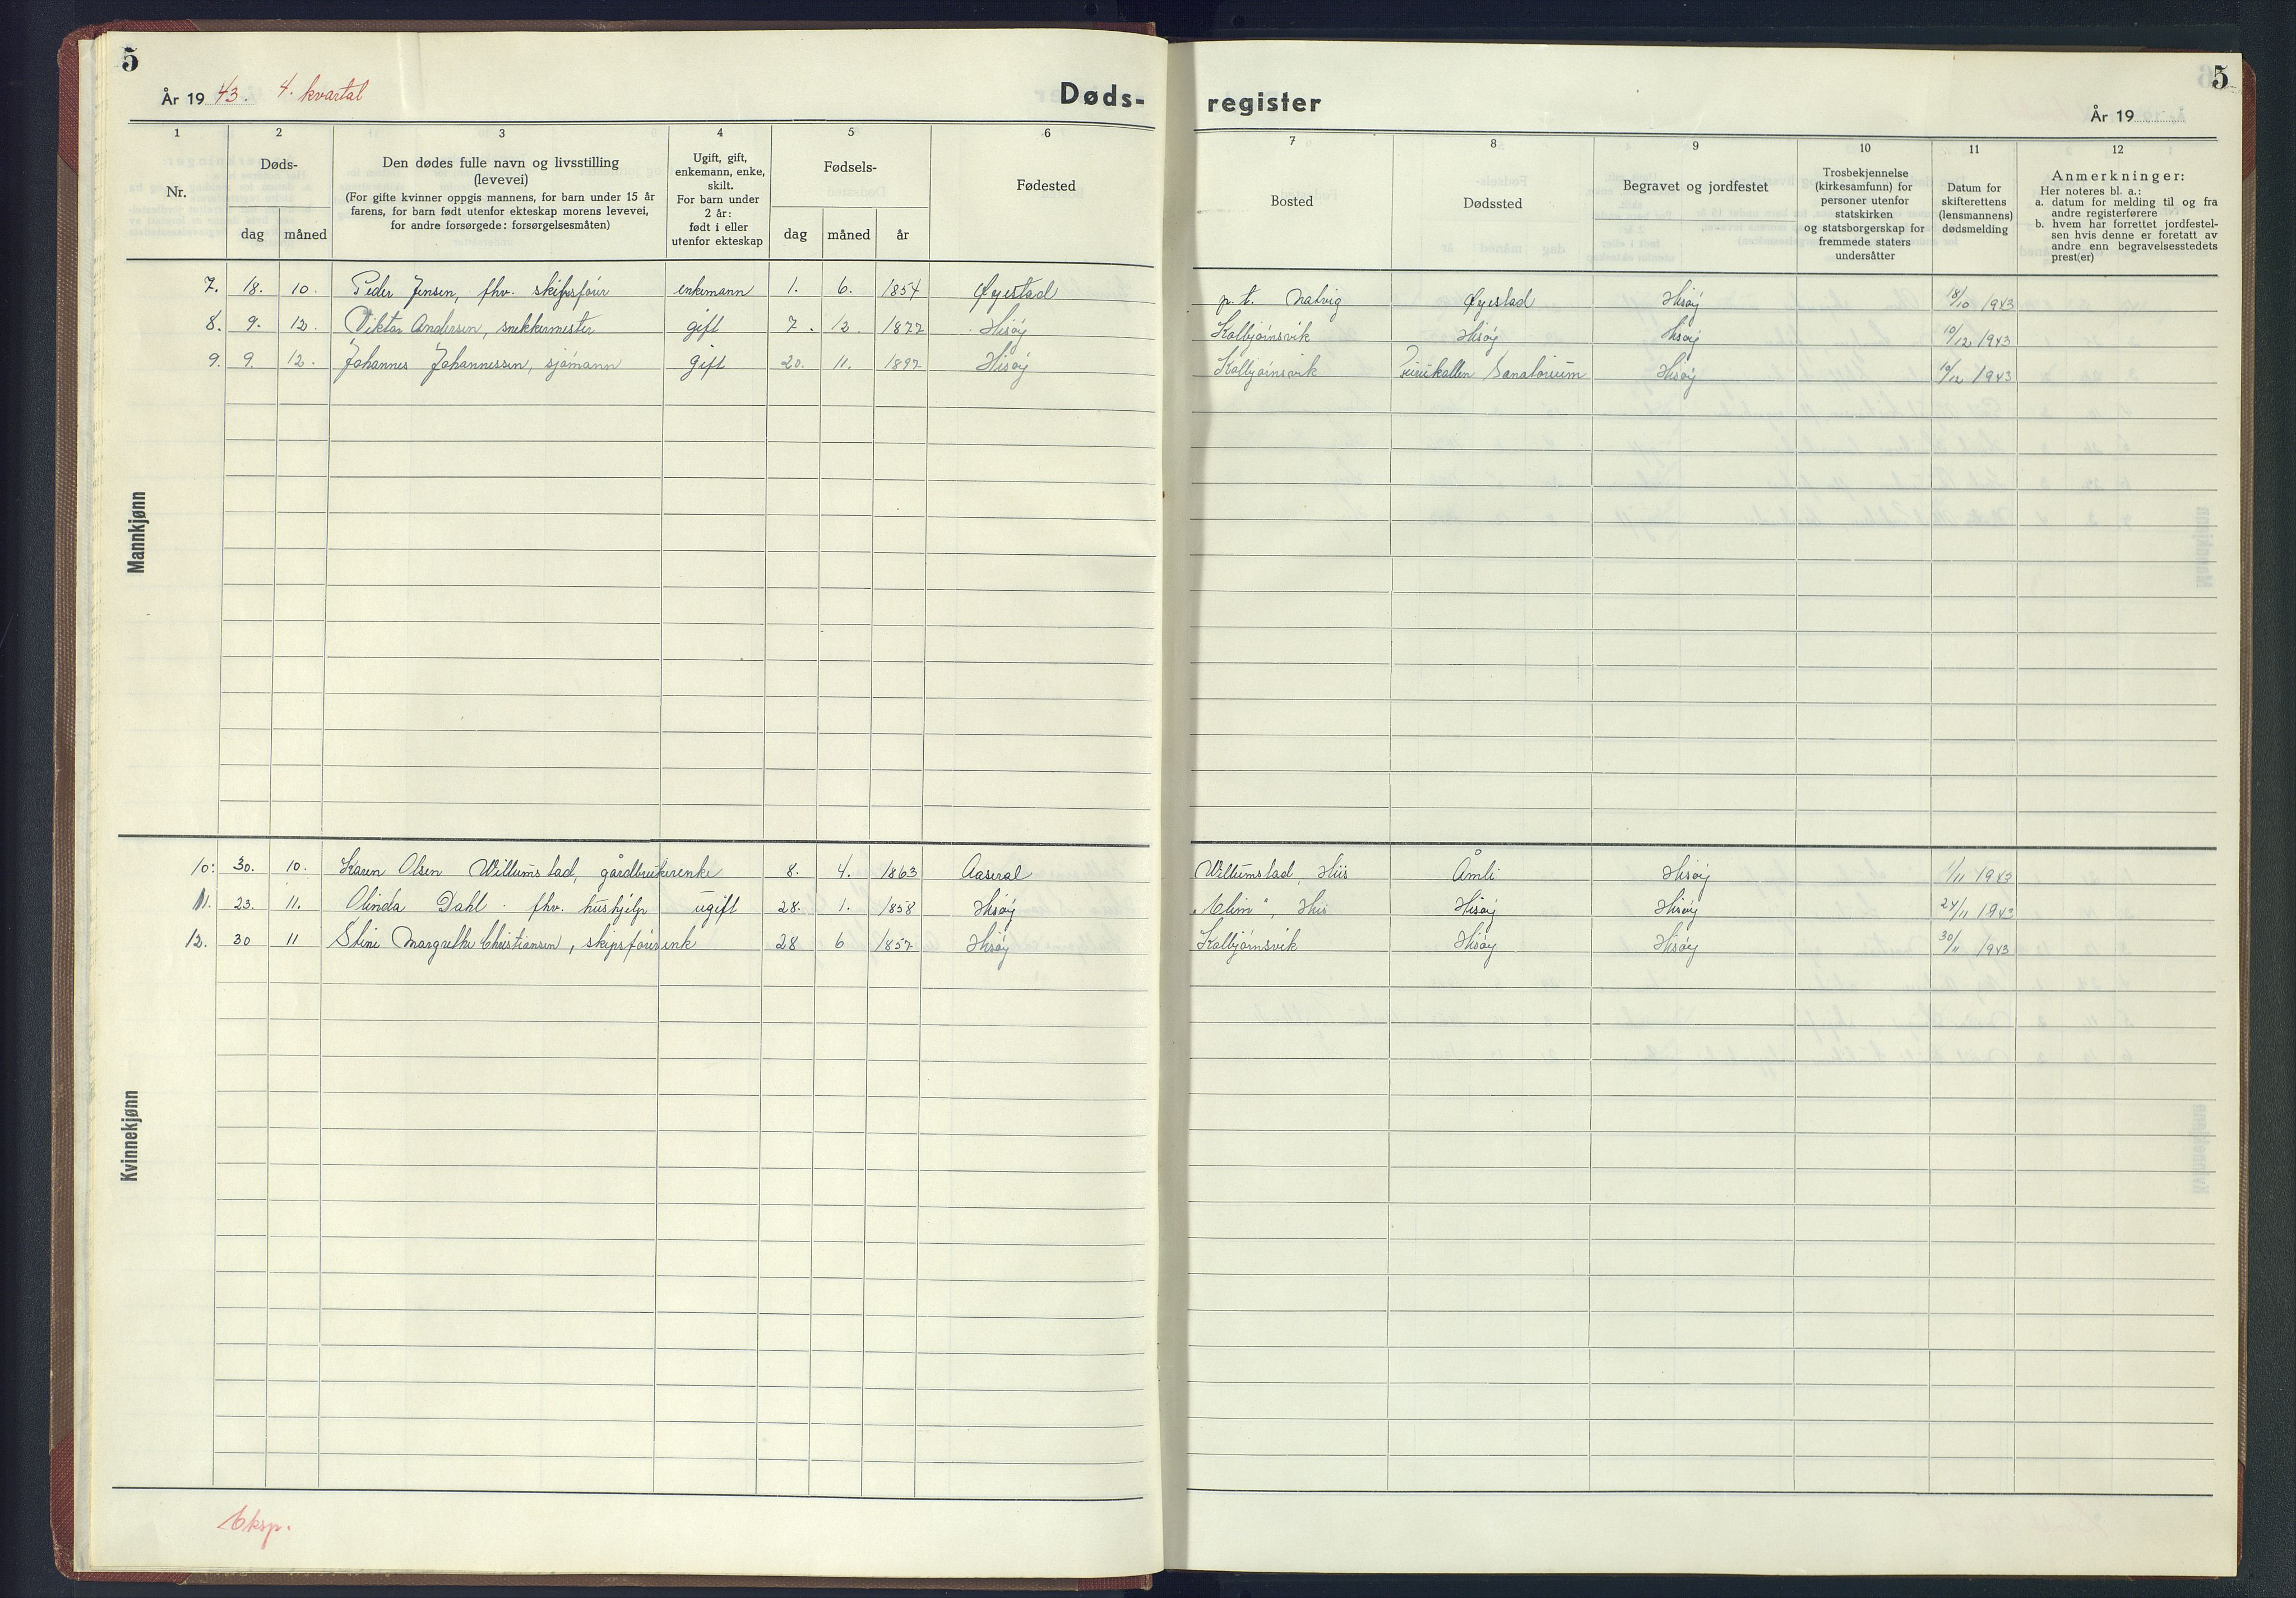 5
År 1943. 4. kvartal
Døds-
1 2 3 4 5 6
Nr.
Døds-
dag måned
Den dødes fulle navn og livsstilling
(levevei)
(For gifte kvinner oppgis mannens, for barn under 15 år
farens, for barn født utenfor ekteskap morens levevei,
for andre forsørgede: forsørgelsesmåten)
Ugift, gift,
enkemann, enke,
skilt.
For barn under
2 år:
født i eller
utenfor ekteskap
Fødsels-
dag måned år
Fødested
Mannkjønn
7. 18. 10. Peder Jensen, fhv. skipsfører enkemann 1. 6. 1854 Øyestad
8. 9. 12. Viktor Andersen, snekkermester gift 7. 12. 1877 Hisøy
9. 9. 12. Johannes Johannessen, sjømann gift 20. 11. 1897 Hisøy
Kvinnekjønn
10. 30. 10. Karen Olsen Willumstad, gårdbrukerenke 8. 4. 1863 Aaseral
11. 23. 11. Olinda Dahl. fhv. hushjelp ugift 28. 1. 1858 Hisøy
12. 30 11 Stine Margrethe Christiansen, skipsførerenk 28 6 1857 Hisøy
Eksp.
register
5
År 19
7 8 9 10 11 12
Bosted
Dødssted
Begravet og jordfestet
Trosbekjennelse
(kirkesamfunn) for
personer utenfor
statskirken
og statsborgerskap for
fremmede staters
undersåtter
Datum for
skifterettens
(lensmannens)
dødsmelding
Anmerkninger:
Her noteres bl. a.:
a. datum for melding til og fra
andre registerførere
b. hvem har forrettet jordfestel-
sen hvis denne er foretatt av
andre enn begravelsesstedets
prest(er)
p. t. Natvig Øyestad Hisøy 18/10 1943
Kolbjørnsvik Hisøy Hisøy 10/12 1943
Kolbjørnsvik Sanatorium Hisøy 1943
Willumstad, His Åmli Hisøy 1/11 1943
"Elim", His Hisøy Hisøy 24/11 1943
Kolbjørnsvik Hisøy Hisøy 30/11 1943